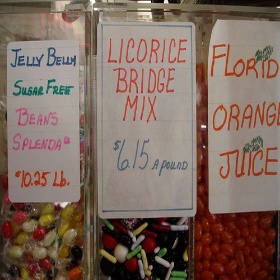 JELLY BELLY
SUGAR FREE
BEANS
SPLENDA®
$10.25 LB.
LICORICE
BRIDGE
MIX
$6.15 A POUND
FLORID
ORANGE
JUICE